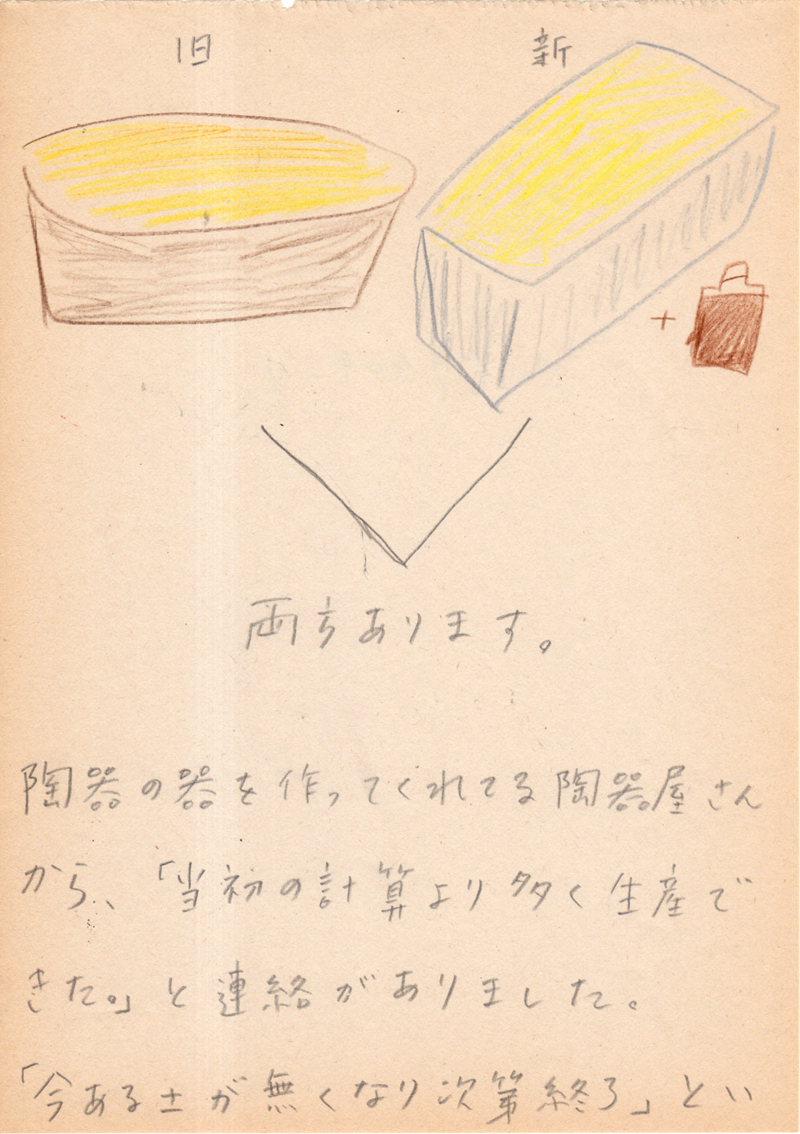 旧 新
+
両方あります。
陶器の器を作ってくれてる陶器屋さん
から、「当初の計算より多く生産で
きた。」と連絡がありました。
「今ある土が無くなり次第終了」とい